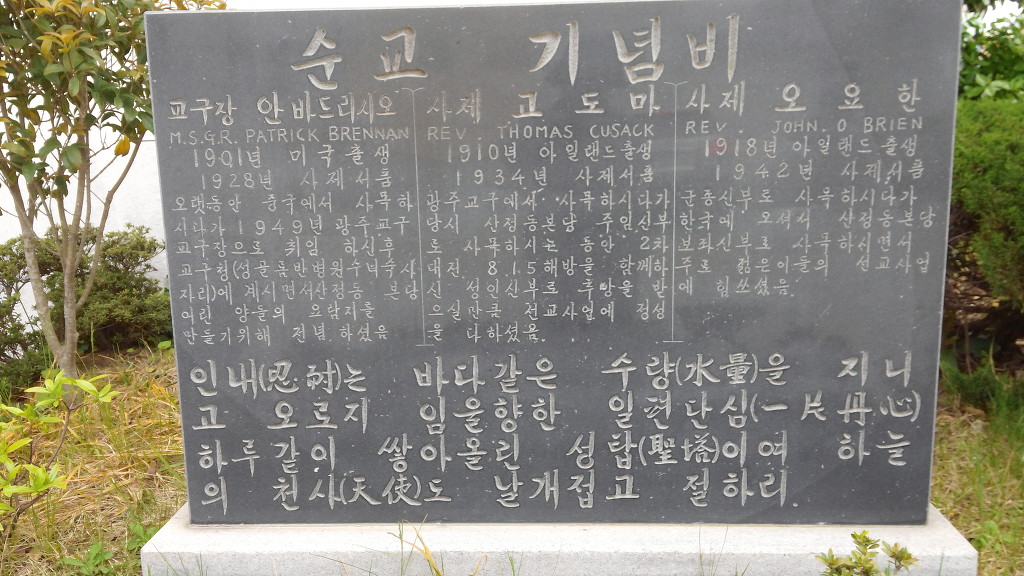 순교 기념비
교구장 안 바드리시오
M.S.G.R. PATRICK BRENNAN
1901년 미국출생
1928년 사제서품
오랫동안 중국에서 사목하
시다가 1949년 광주교구
교구장으로 취임 하신후
교구청(성골롬반병원수녀숙사
자리)에 계시면서산정동 본당
어린 양들의 요람지를
만들기위해 전념 하셨음
사제 고 도마
REV THOMAS CUSACK
1910년 아일랜드출생
1934년 사제서품
광주교구에서 사목하시다가
당시 산정동본당 주임신부
로 사목하시는 동안 2차
대전 815해방을 함께하
신 성인신부로 추앙을 받
으실만큼 전교사업에 정성
을 다하셨음
사제 오요한
REV. JOHN. O BRIEN
1918년 아일랜드출생
1942년 사제서품
군종신부로 사목하시다가
한국에 오셔서 산정동본당
보좌신부로 사목하시면서
주로 젊은이들의 선교사업
에 힘쓰셨음
인내(忍耐)는 바다같은 수량(水量)을 지니
고 오로지 임을향한 일편단심(一片丹心)
하루같이 쌓아올린 성탑(聖塔)이여 하늘
의 천사(天使)도 날개접고 절하리